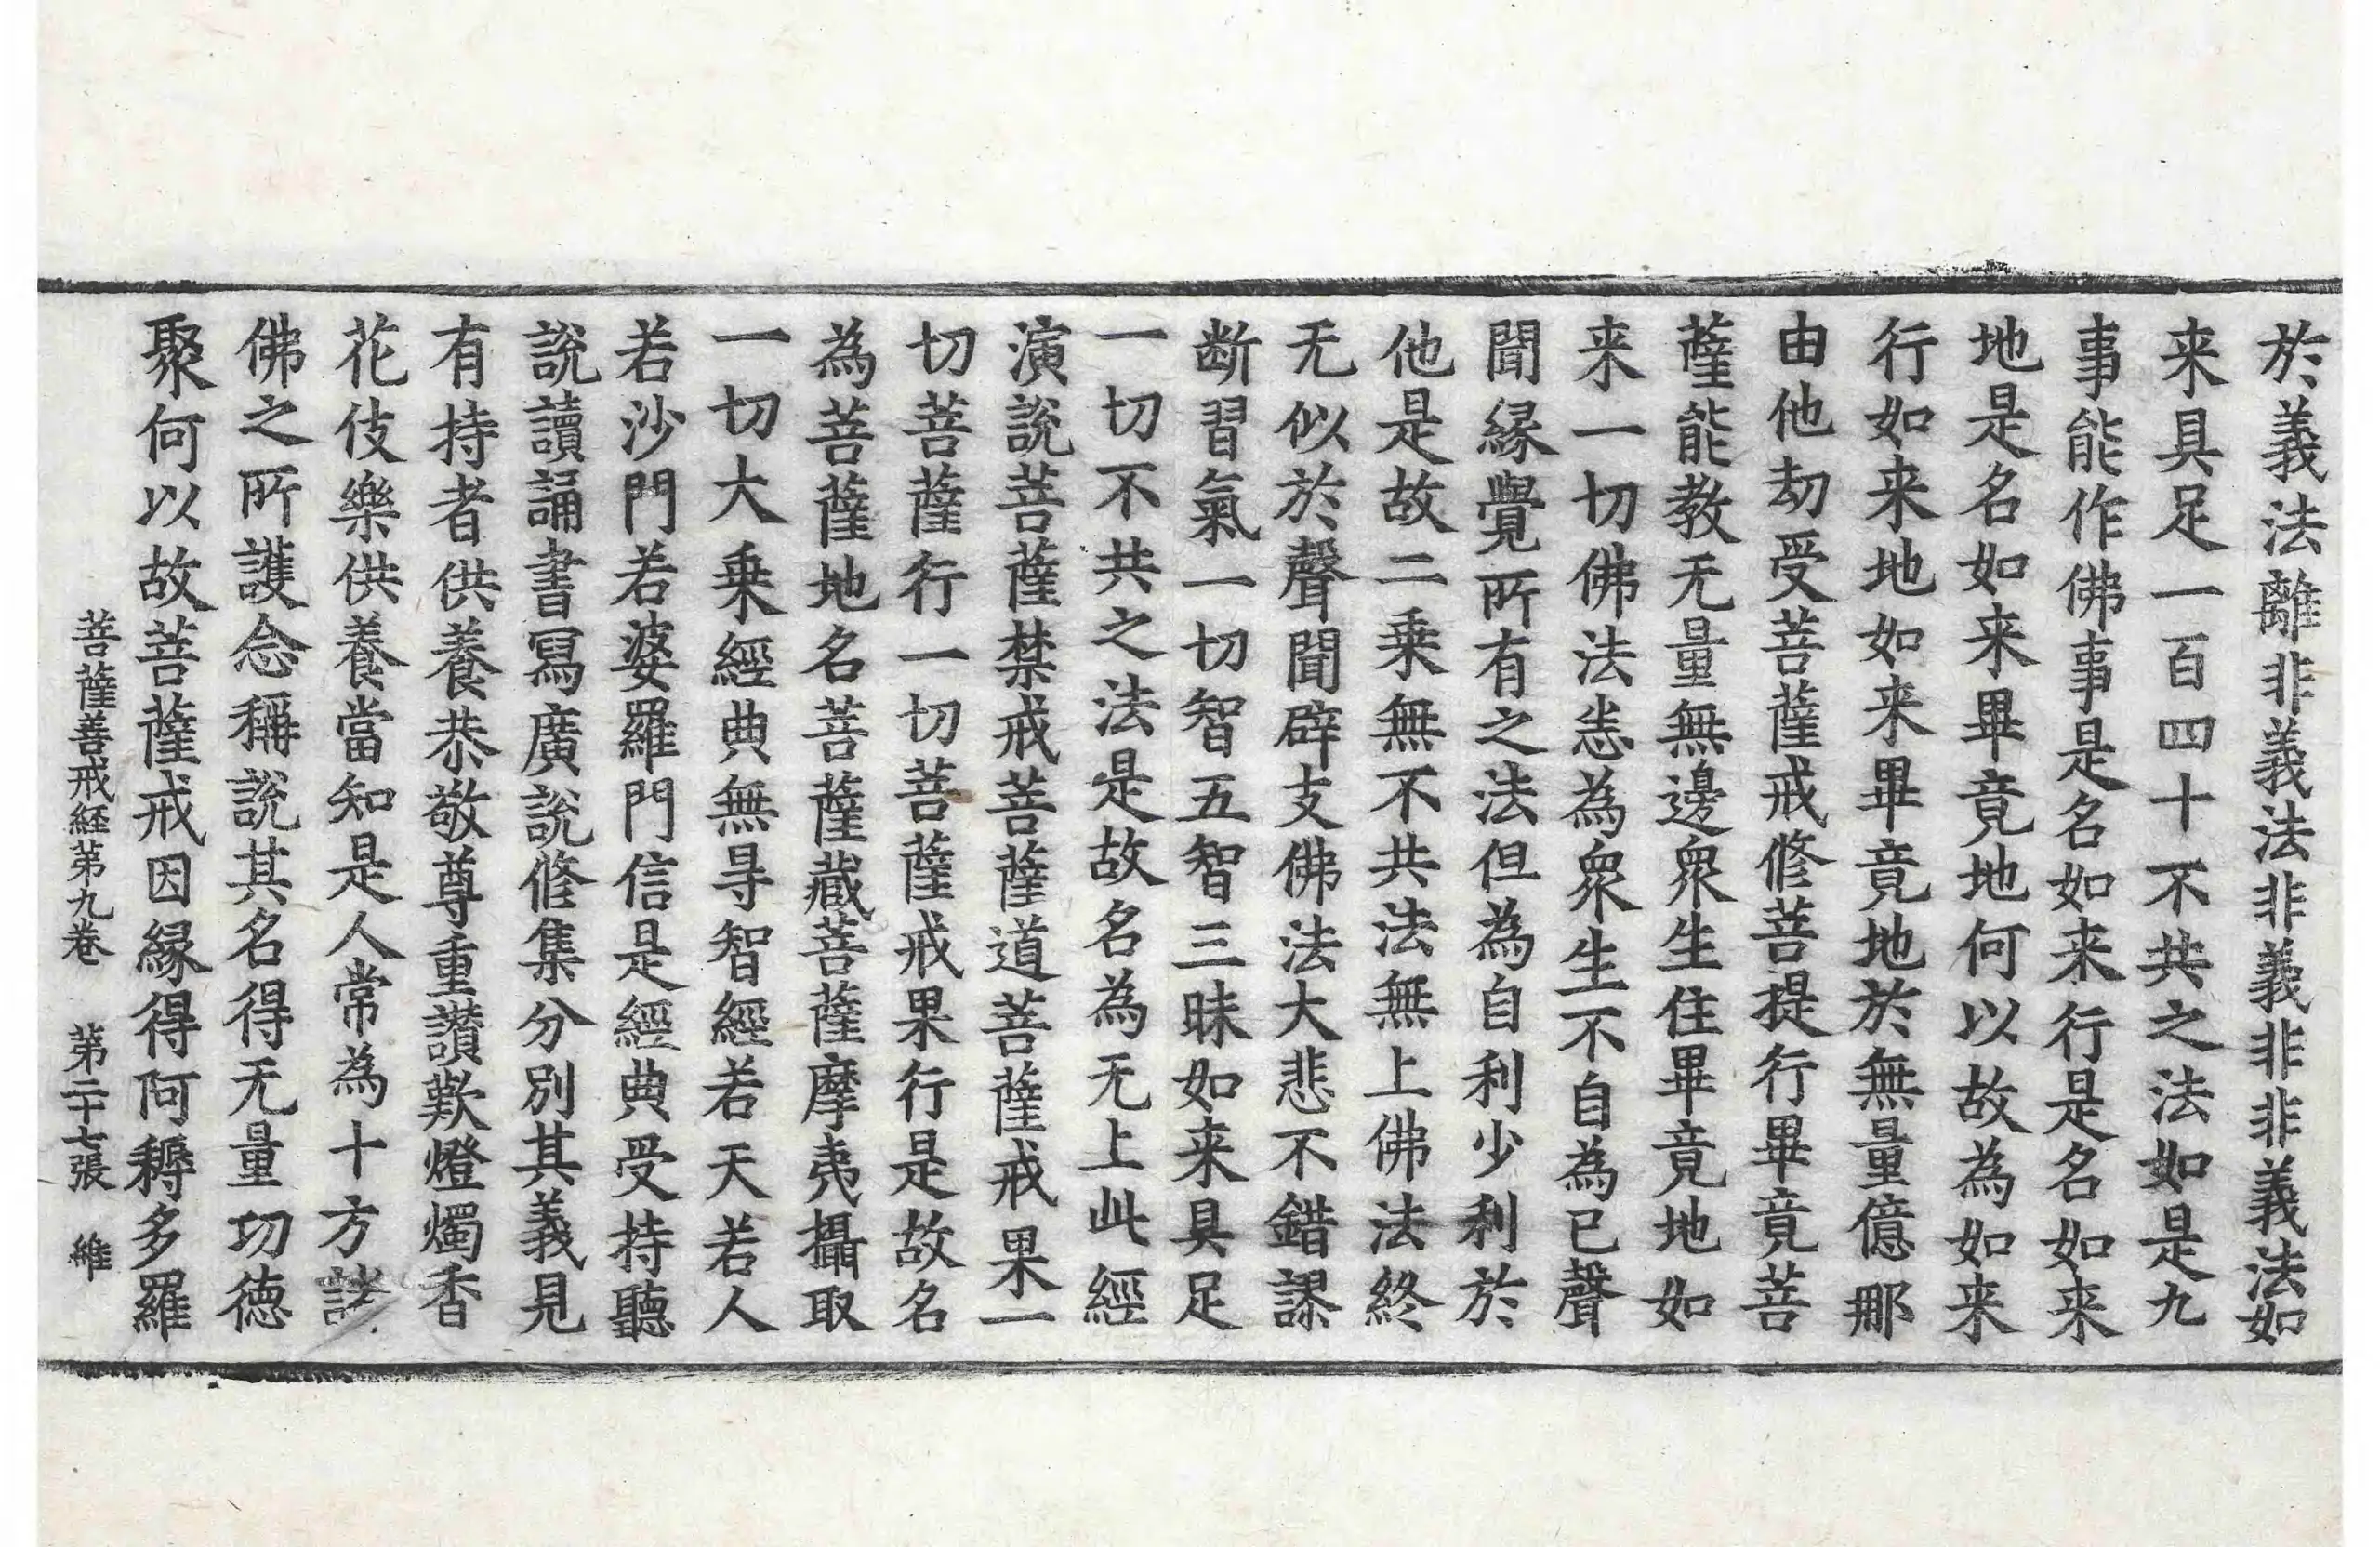 於義法離非義法非義非非義法如
来具足一百四十不共之法如是九
事能作佛事是名如来行是名如来
地是名如来畢竟地何以故為如来
行如来地如来畢竟地於無量億那
由他劫受菩薩戒修菩提行畢竟菩
薩能教无量無邊衆生住畢竟地如
来一切佛法恙為衆生不自為已聲
聞縁覺所有之法但為自利少利於
他是故二乗無不共法無上佛法終
无似於聲聞辟支佛法大悲不錯謬
断習氣一切智五智三昧如来具足
一切不共之法是故名為无上此經
演說菩薩禁戒菩薩道菩薩戒果一
切菩薩行一切菩薩戒果行是故名
為菩薩地名菩薩藏菩薩摩夷攝取
一切大乗經典無㝵智經若天若人
若沙門若婆羅門信是經典受持聽
說讀誦書寫廣說修集分別其義見
有持者供養恭敬尊重讃歎燈燭香
花伎樂供養當知是人常為十方諸
佛之所護念稱說其名得无量切徳
聚何以故菩薩戒因縁得阿耨多羅
菩薩善戒経第九巻　第二十七張　維